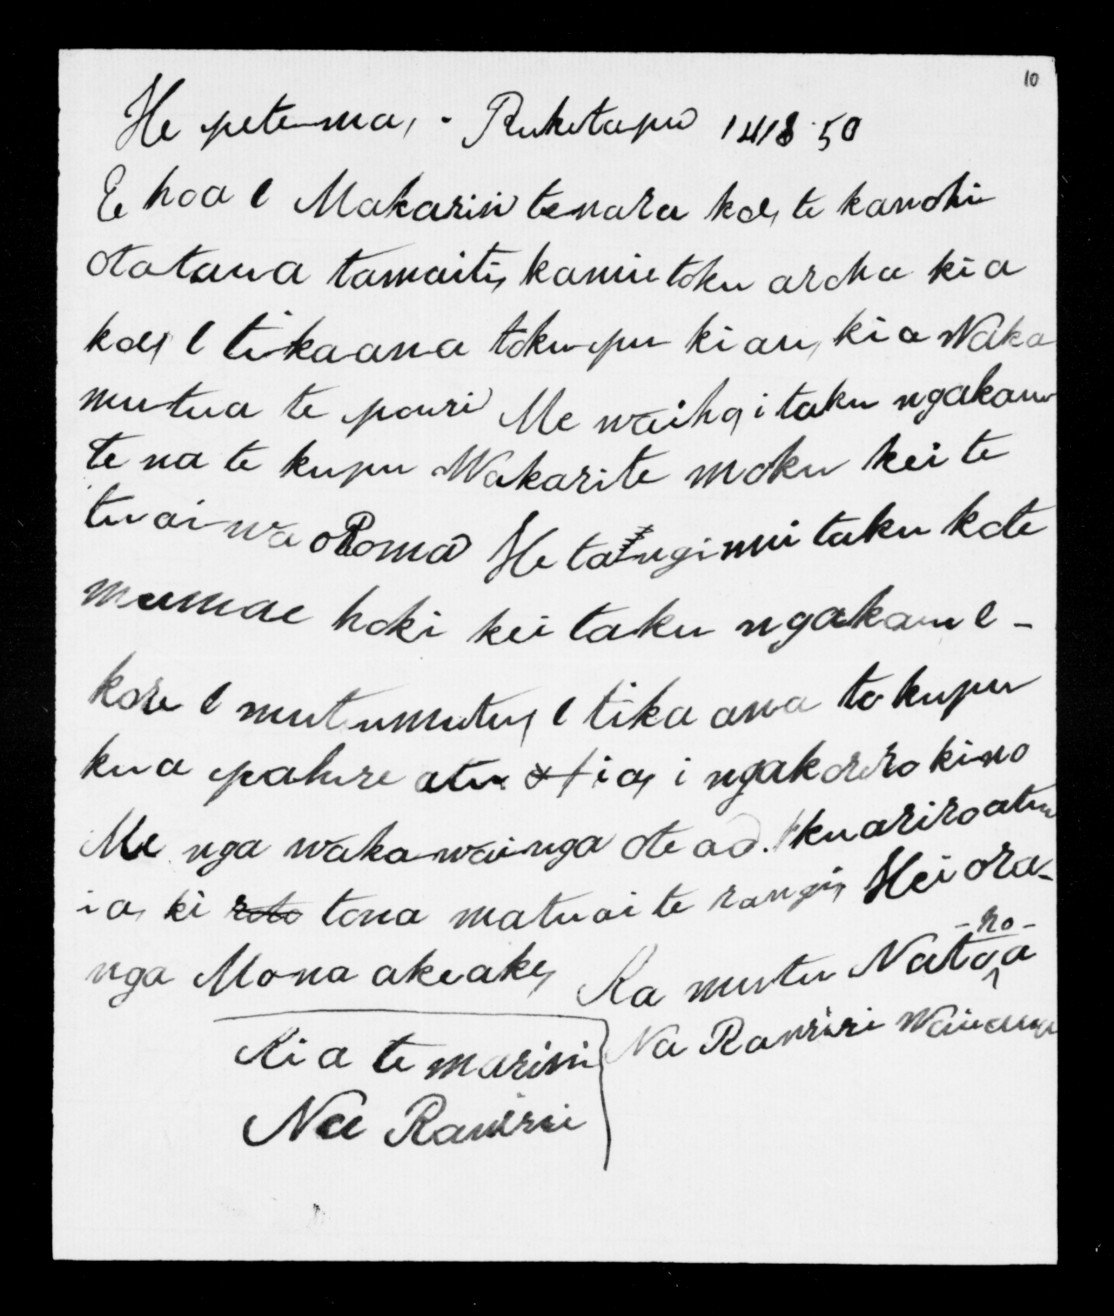 10
He pete-ma, - Puketapu 14/8 50
E hoa e Makarini tenara koe, te kanohi
otatana tamaiti, kanui toku aroha ki a
koe, e tika ana toku pu ki au, kia Waka
mutua te pouri Me waiho, i taku ngakau
te na te kupu Wakarite moku kei te
tuai wa oRoma He tangi nui taku kote
mamae hoki kei taku ngakau e -
kore e mutumutu, e tika ana to kupu
kua pahure atu ia, i ngakorero kino
Me nga waka-wainga ote ao. kuariroatu
ia, ki roto tona matuai te rangi, Hei ora-
nga Mo-na akeake, Ka mutu Natoa
-ro-
Na Raniri Waiaua
Ki a te marini
Na Raniri